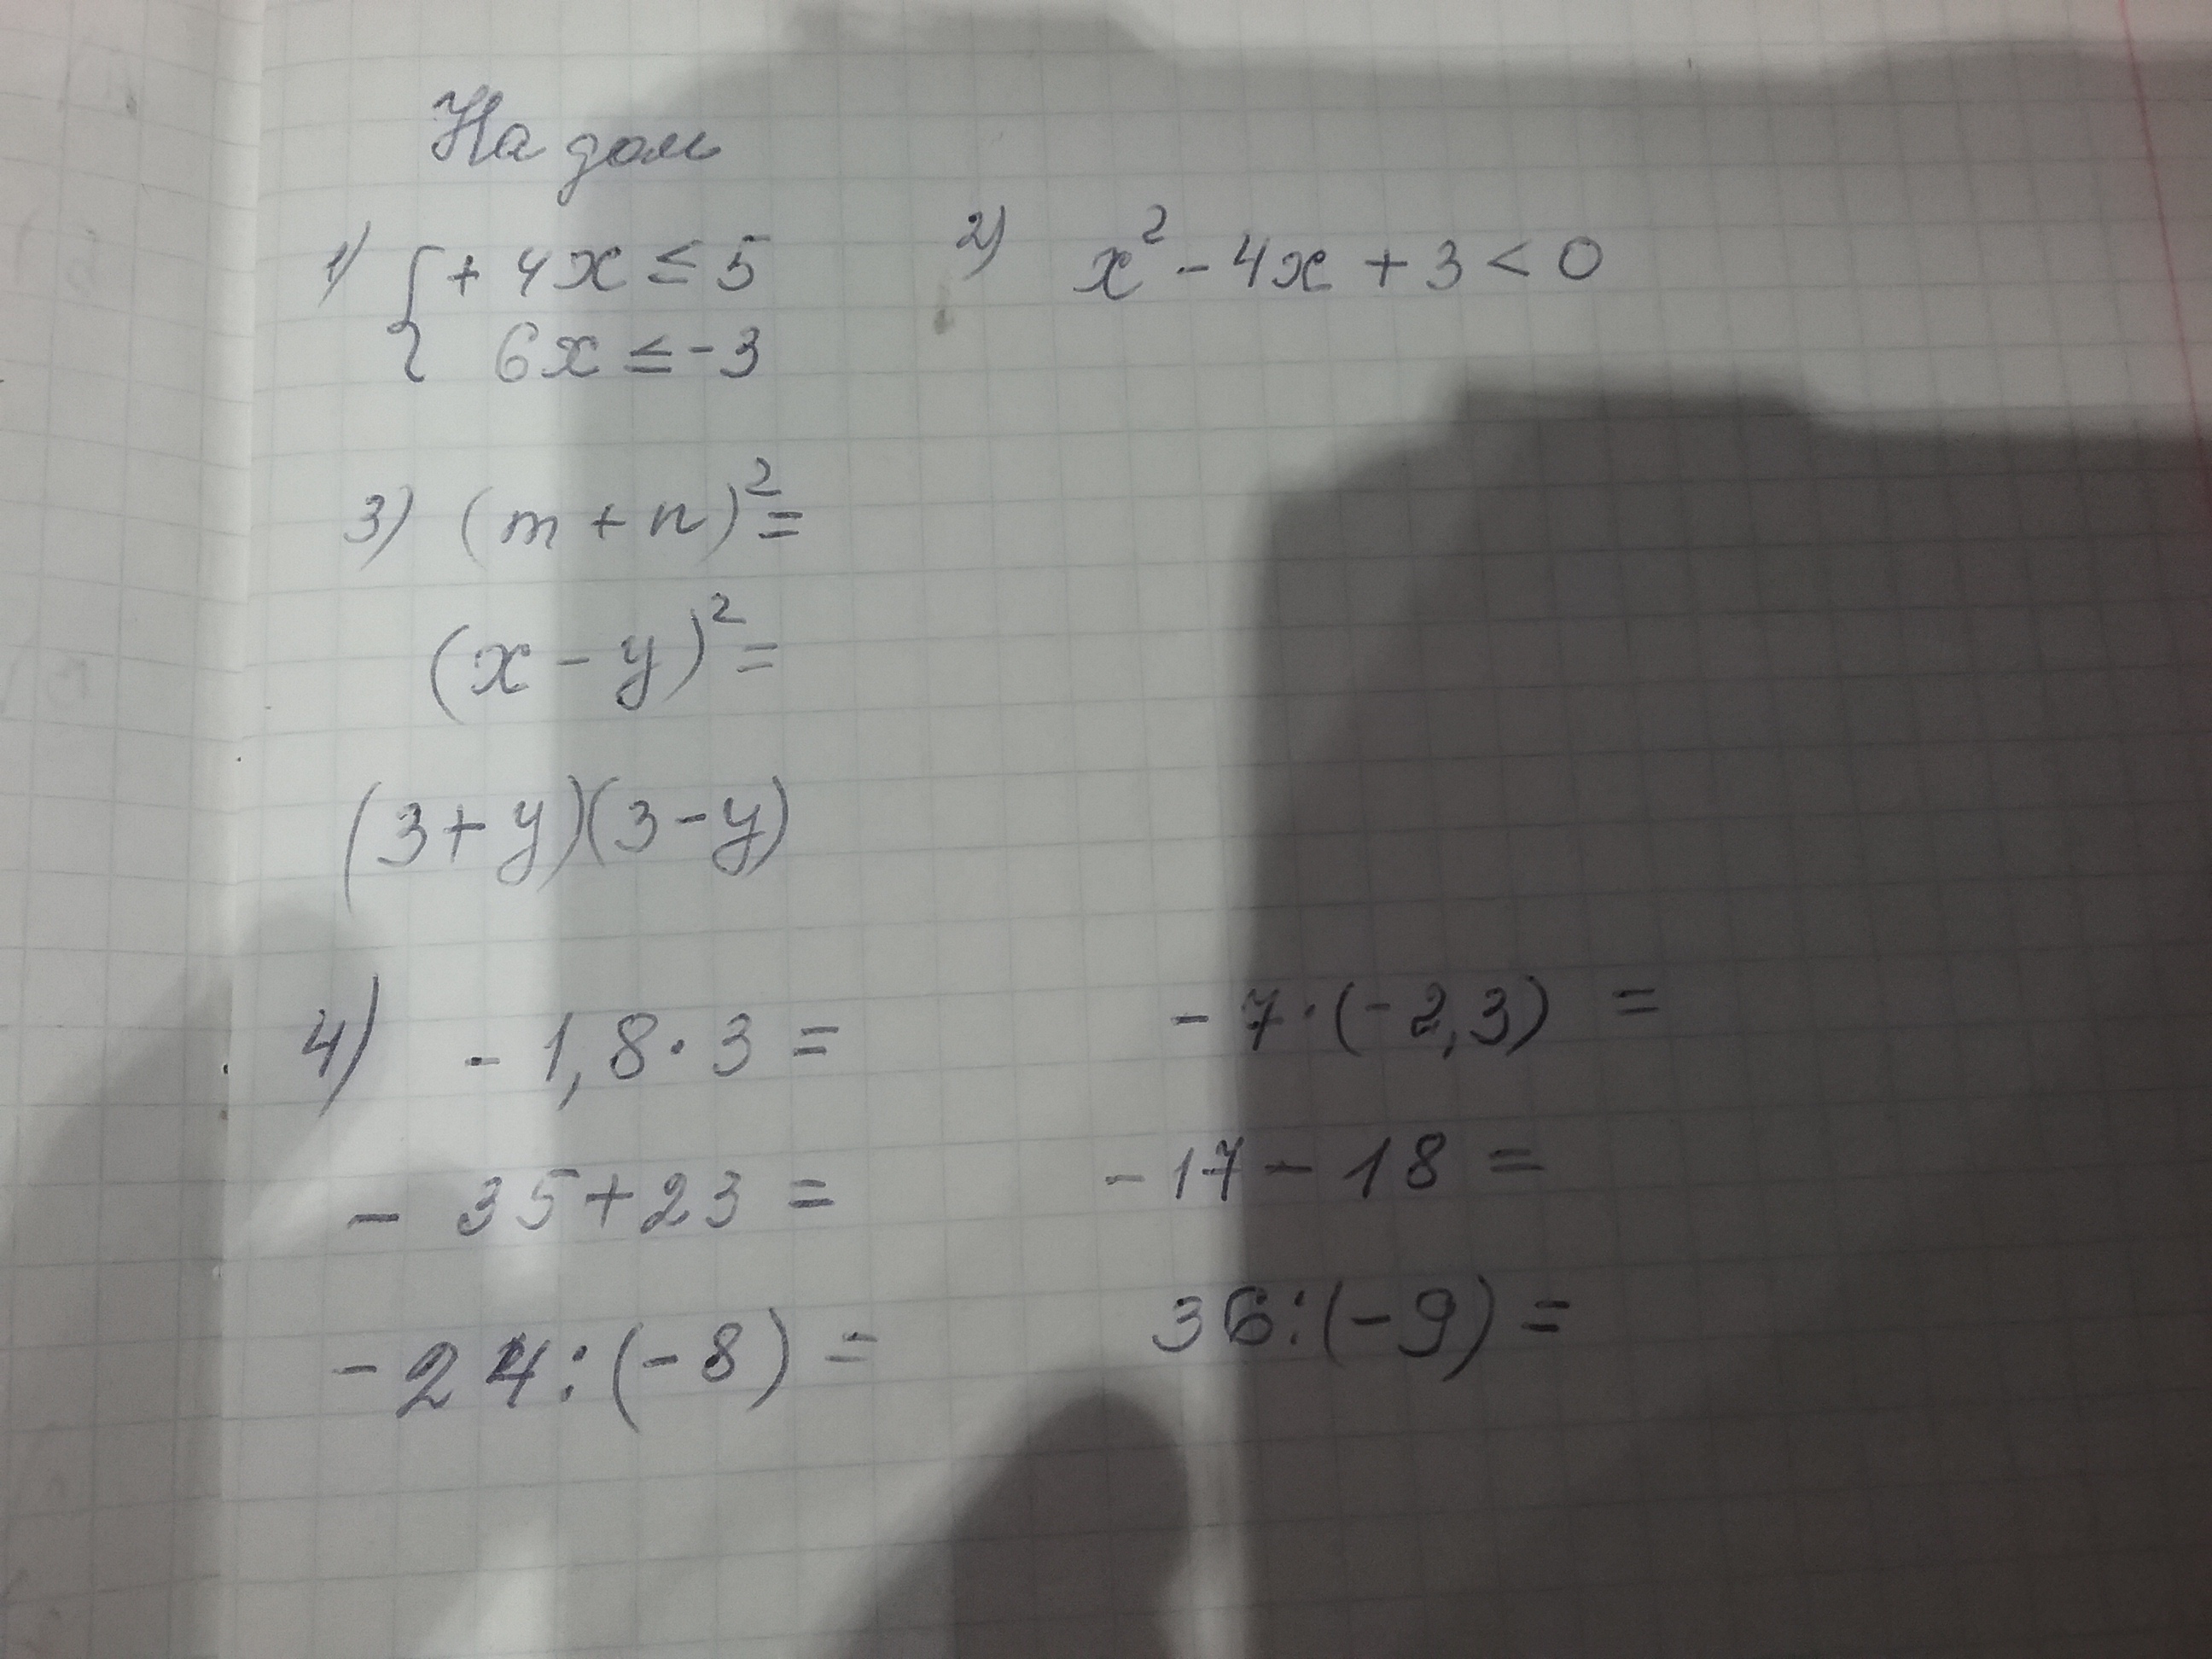 На дом
1) { + 4x ≤ 5
6x ≤ -3
2) x² - 4x + 3 < 0
3) (m + n)² =
(x - y)² =
(3 + y)(3 - y)
4) - 1,8 · 3 =
- 7 · (- 2,3) =
- 35 + 23 =
- 17 - 18 =
- 24 : (- 8) =
36 : (- 9) =